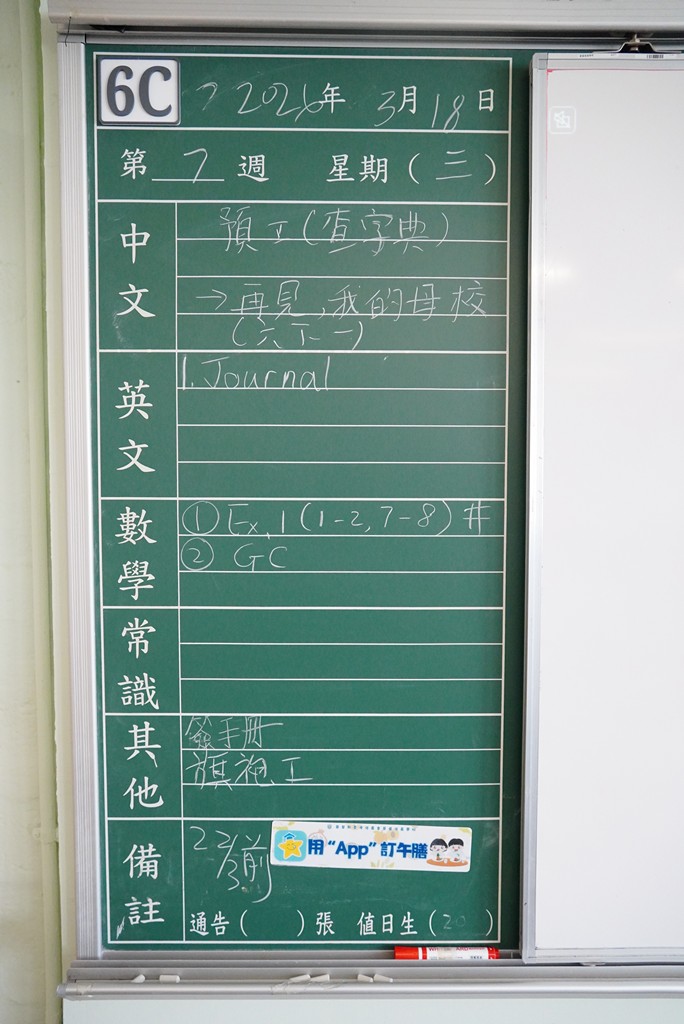 6C 2026年 3月18日
第 7 週 星期(三)
中文
預工(查字典)
→再見,我的母校
(六下一)
英文
1. Journal
數學
① Ex.1 (1-2, 7-8) #
② GC
常識
其他
簽手冊
旗袍工
備註
22/3前
用“App”訂午膳
通告( )張 值日生(20)